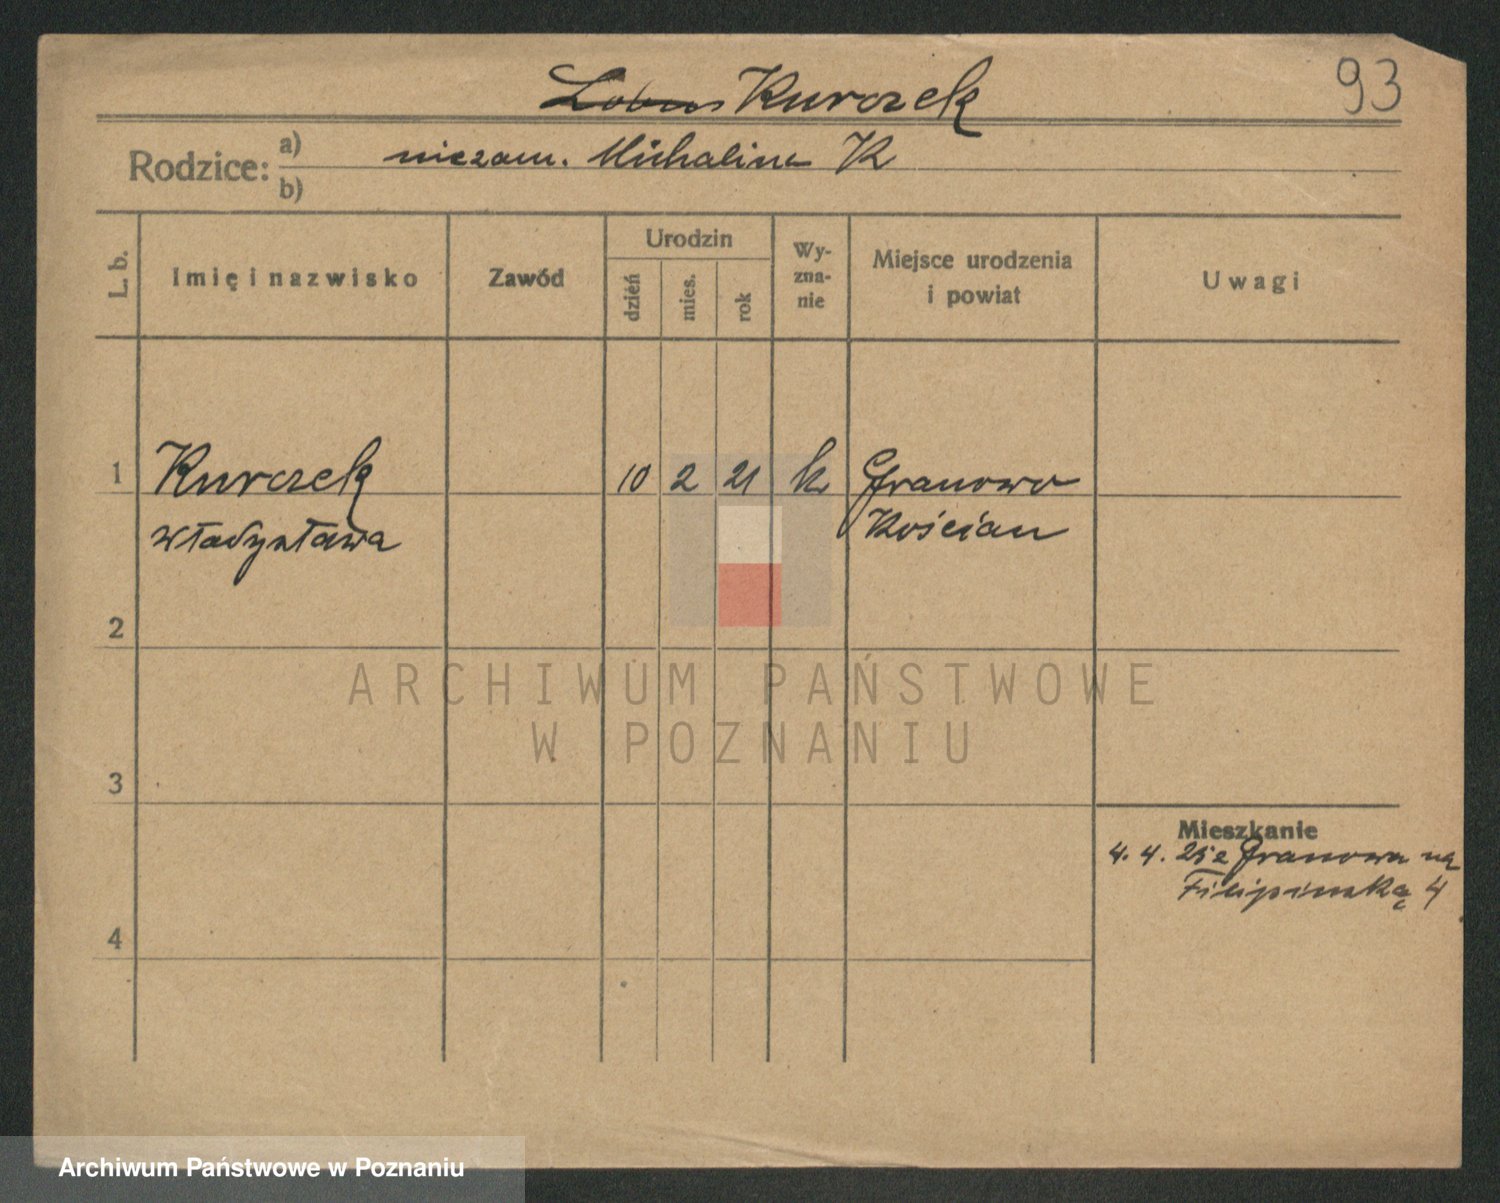 Kurczek 93
Rodzice: a) niezam. Michalina K
b)
L. b. Imię i nazwisko Zawód Urodzin dzień mies. rok Wy-zna-nie Miejsce urodzenia i powiat Uwagi
1 Kurczek 10 2 21 k Granowo
Władysława Kościan
2
ARCHIWUM PAŃSTWOWE
W POZNANIU
3
Mieszkanie
4. 4. 25 z Granowa na
4
Archiwum Państwowe w Poznaniu